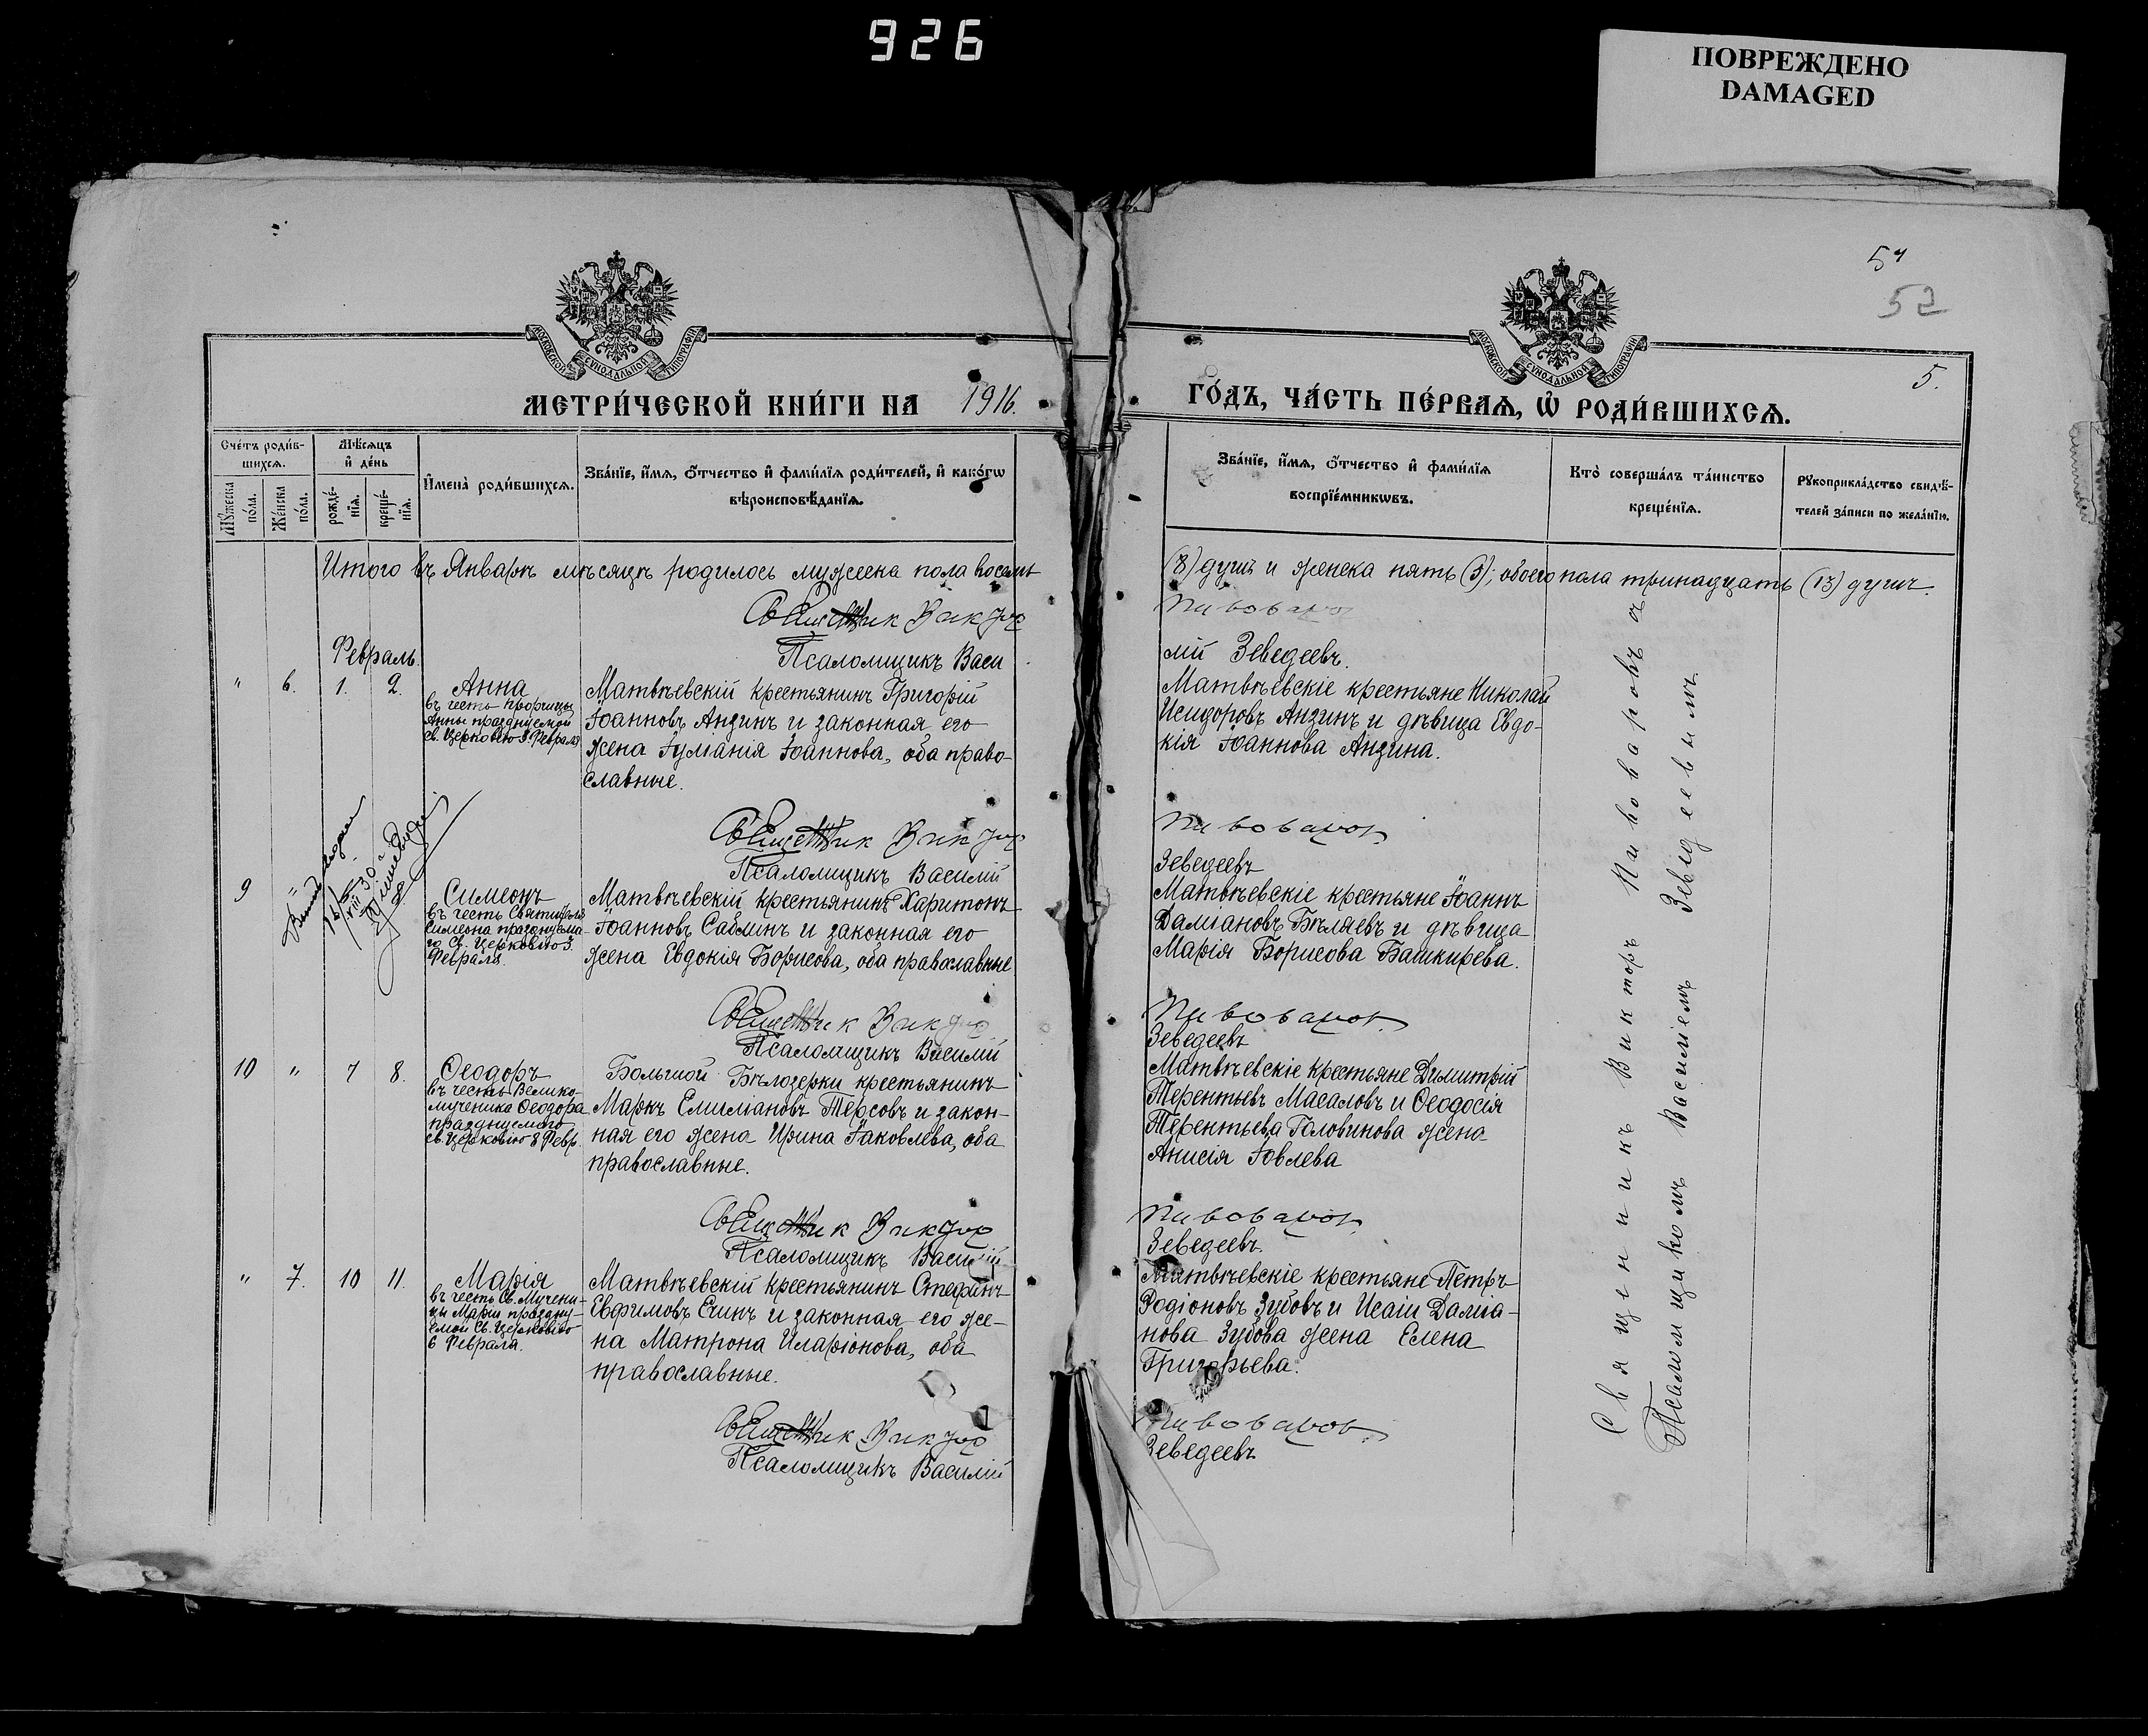 926
ПОВРЕЖДЕНО
DAMAGED
52
5.
МОСКОВСКОЙ СУНОДАЛЬНОЙ ТИПОГРАФІИ
МОСКОВСКОЙ СУНОДАЛЬНОЙ ТИПОГРАФІИ
МЕТРИ́ЧЕСКОЙ КНИ́ГИ НА 1916.
ГО́ДЪ, ЧА́СТЬ ПЕ́РВАѦ, Ѡ҆ РОДИ́ВШИХСѦ.
Сче́тъ роди́в-
шихсѧ.
Мѣ́сѧцъ
и҆ де́нь
Мꙋ́жеска
по́ла.
Же́нска
по́ла.
рожде́-
нїѧ.
креще́-
нїѧ.
И҆мена̀ роди́вшихсѧ.
Зва́нїе, и҆́мѧ, ѻ҆́тчество и҆ фами́лїѧ роди́телей, и҆ како́гѡ
вѣроисповѣ́данїѧ.
Зва́нїе, и҆́мѧ, ѻ҆́тчество и҆ фами́лїѧ
воспрїе́мникѡвъ.
Кто̀ соверша́лъ та́инство
креще́нїѧ.
Рꙋкоприкла́дство свидѣ́-
телей за́писи по жела́нїю.
Итого въ Январѣ мѣсяцѣ родилось мужеска пола восемь
(8) душъ и женска пять (5); обоего пола тринадцать (13) душъ.
Священник Виктор
Пивоваров
Псаломщикъ Васи
лій Зеведеевъ.
Февраль.
" 6. 1. 2. Анна
въ честь пророчицы
Анны празднуемой
св. Церковію 3. Февраля
Матвѣевскій крестьянинъ Григорій
Іоанновъ Анзинъ и законная его
жена Іуліанія Іоаннова, оба право-
славные.
Матвѣевскіе крестьяне Николай
Исидоровъ Анзинъ и дѣвица Евдо-
кія Іоаннова Анзина.
Священник Виктор
Пивоваров.
Псаломщикъ Василій
Зеведеевъ
9 " Симеонъ
въ честь Святителя
Симеона празднуема-
го Св. Церковію 3.
Февраля.
Матвѣевскій крестьянинъ Харитонъ
Іоанновъ Саблинъ и законная его
жена Евдокія Борисова, оба православные
Матвѣевскіе крестьяне Іоаннъ
Даміановъ Бѣляевъ и дѣвица
Марія Борисова Башкирева.
Священник Виктор
Пивоваров.
Псаломщикъ Василій
Зеведеевъ
10 " 7 8. Ѳеодоръ
въ честь Велико-
мученика Ѳеодора
празднуемаго
св. Церковію 8 Февр.
Большой Бѣлозерки крестьянинъ
Маркъ Емиліановъ Терсовъ и закон-
ная его жена Ирина Іаковлева, оба
православные.
Матвѣевскіе крестьяне Димитрій
Терентьевъ Масаловъ и Ѳеодосія
Терентьева Головинова жена
Анисія Іовлева
Священник Виктор
Пивоваров.
Псаломщикъ Василій
Зеведеевъ.
" 7. 10 11. Марія
въ честь Св. Мучени-
цы Маріи праздну-
емой Св. Церковію
6 Февраля.
Матвѣевскій крестьянинъ Стефанъ
Евфимовъ Ечинъ и законная его же-
на Матрона Иларіонова, оба
православные.
Матвѣевскіе крестьяне Петръ
Родіоновъ Зубовъ и Исаіи Даміа-
нова Зубова жена Елена
Григорьева.
Священник Виктор
Пивоваров.
Псаломщикъ Василій
Зеведеевъ
Священникъ Викторъ Пивоваровъ съ
Псаломщикомъ Василіемъ Зеведеевымъ